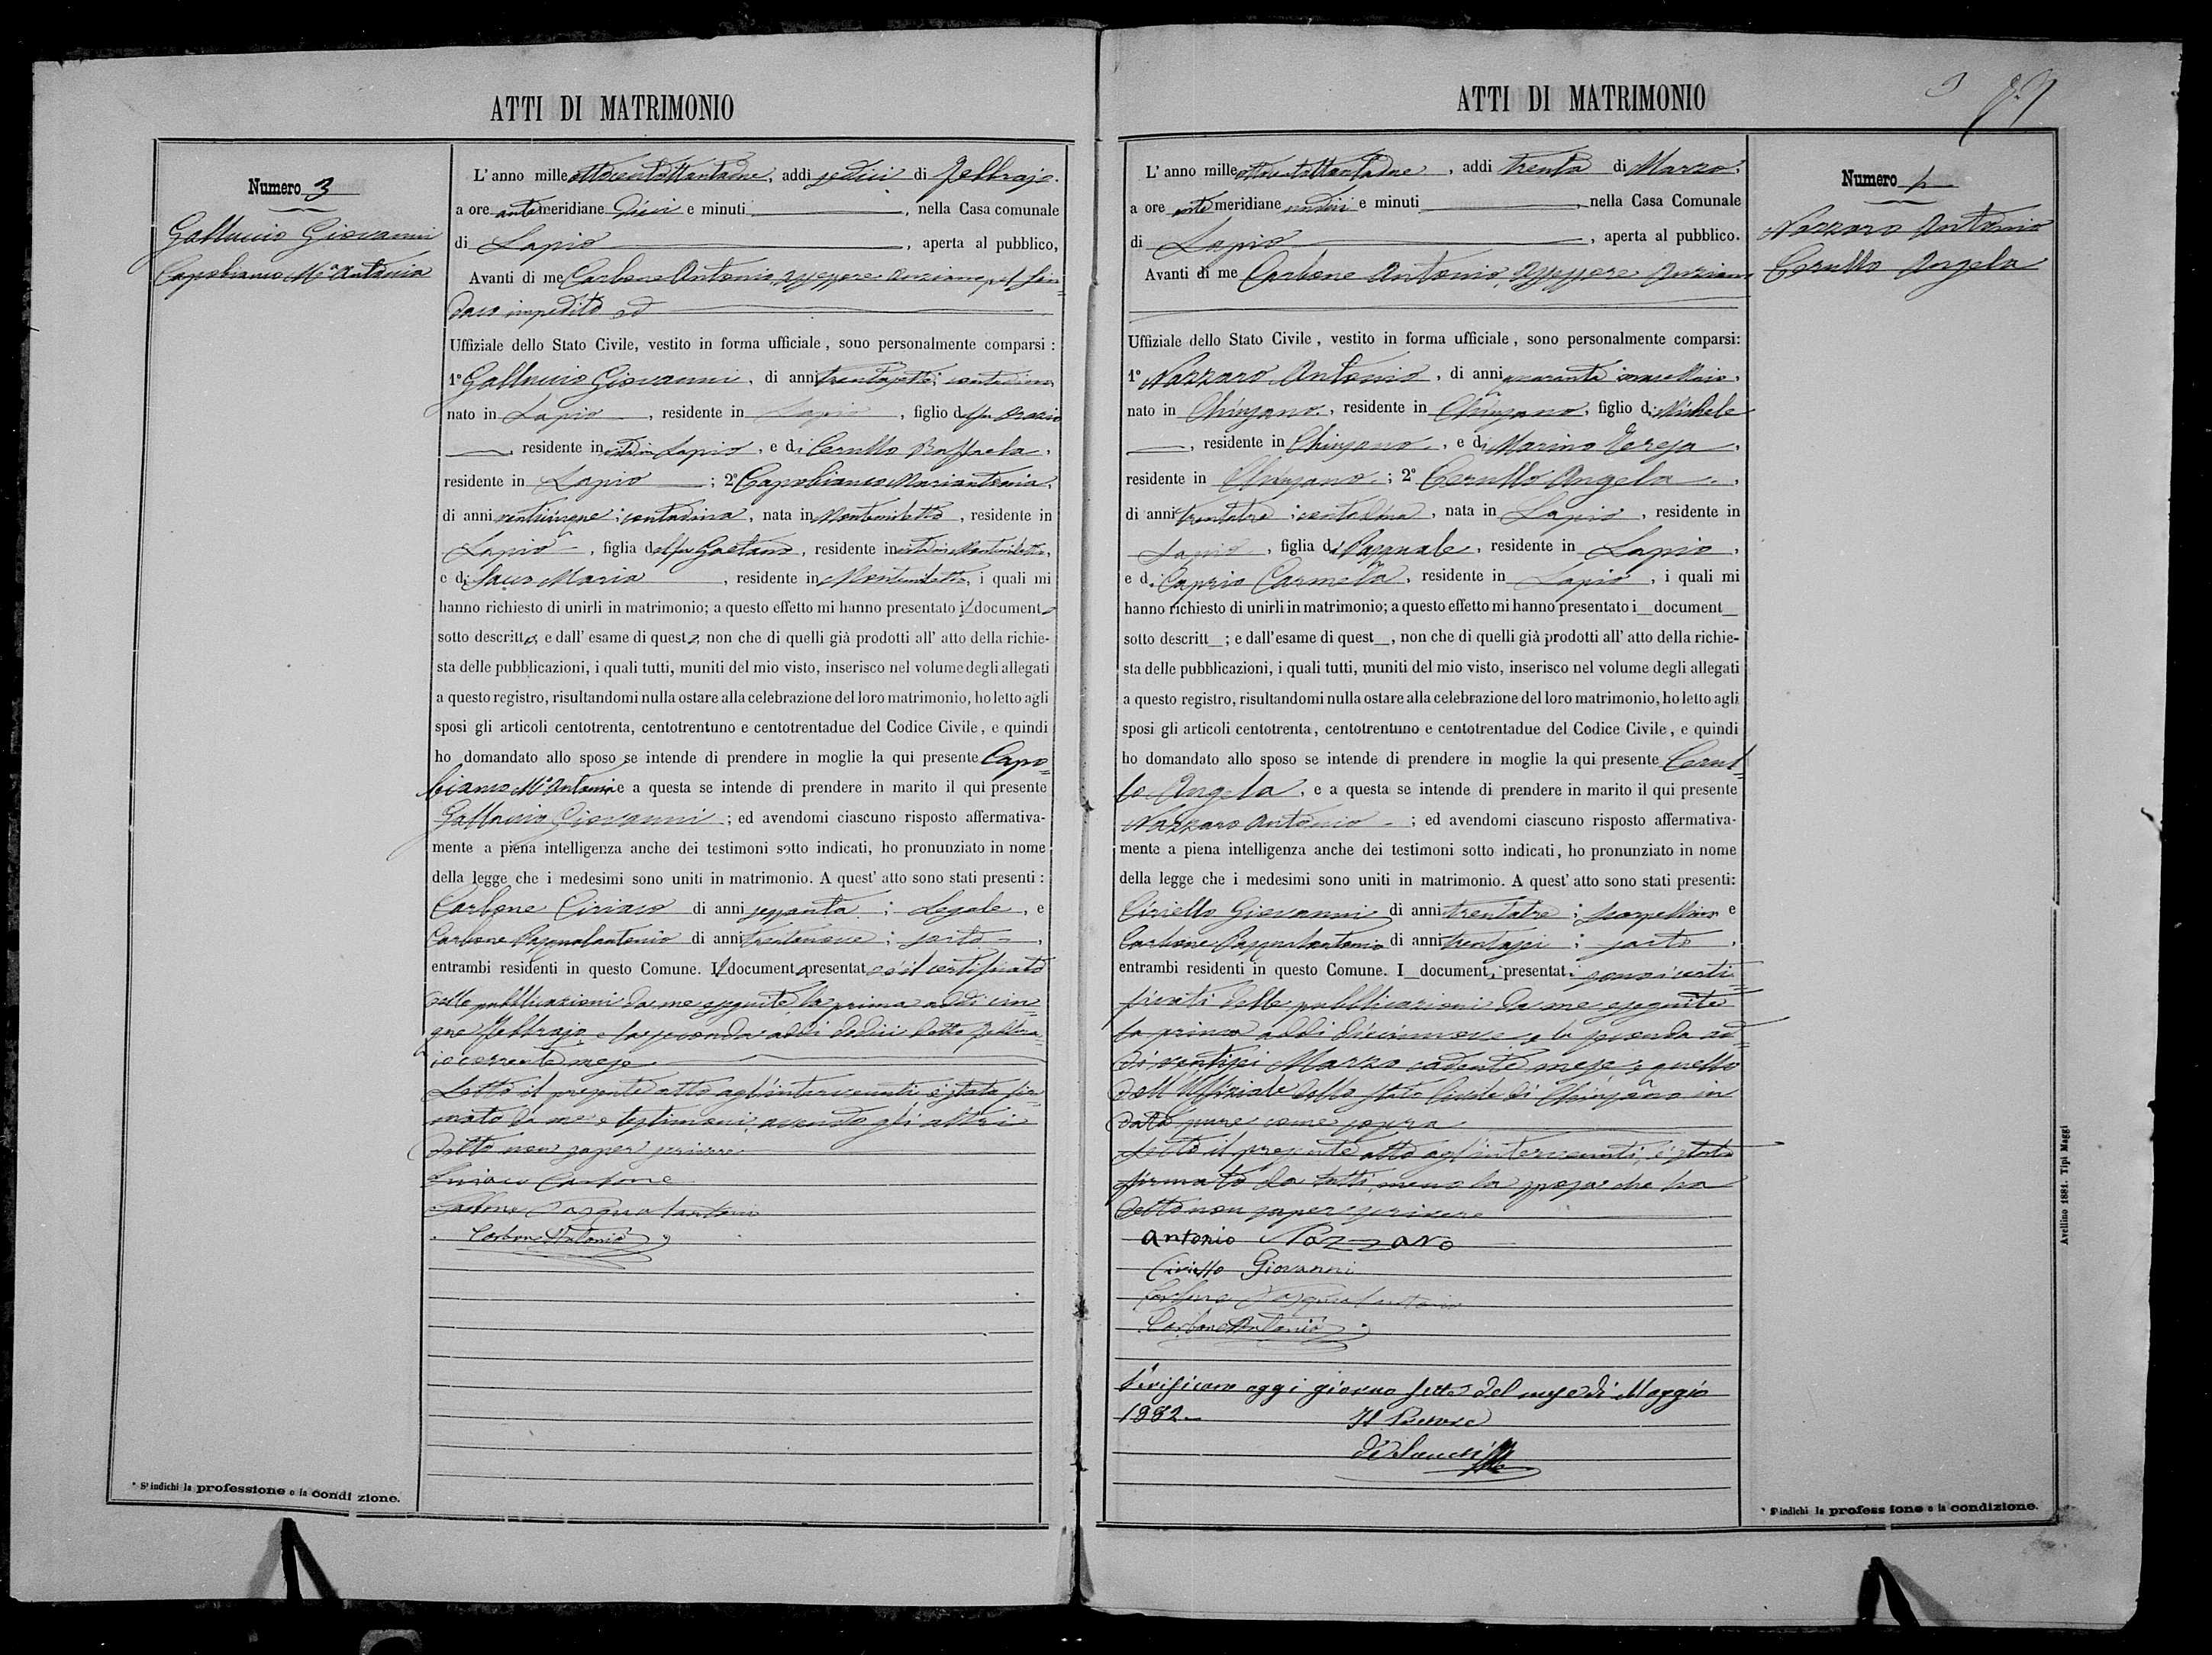 ATTI DI MATRIMONIO
Numero 3
Galluccio Giovanni
Capobianco Mª Antonia
L'anno mille ottocentottantadue, addi sedici di Febbrajo.
a ore antemeridiane dieci e minuti , nella Casa comunale
di Lapio , aperta al pubblico,
Avanti di me Carbone Antonio, assessore anziano pel Sin=
daco impedito ed
Uffiziale dello Stato Civile, vestito in forma ufficiale, sono personalmente comparsi :
1° Galluccio Giovanni, di anni trentasette; contadino
nato in Lapio , residente in Lapio , figlio del fu Orazio
, residente in vita in Lapio, e di Cerullo Raffaela,
residente in Lapio ; 2° Capobianco Mariantonia,
di anni venticinque; contadina, nata in Montemiletto, residente in
Lapio , figlia del fu Gaetano, residente in vita in Montemiletto,
e di Sacco Maria , residente in Montemiletto, i quali mi
hanno richiesto di unirli in matrimonio; a questo effetto mi hanno presentato il documento
sotto descritto; e dall' esame di questo, non che di quelli già prodotti all' atto della richie-
sta delle pubblicazioni, i quali tutti, muniti del mio visto, inserisco nel volume degli allegati
a questo registro, risultandomi nulla ostare alla celebrazione del loro matrimonio, ho letto agli
sposi gli articoli centotrenta, centotrentuno e centotrentadue del Codice Civile, e quindi
ho domandato allo sposo se intende di prendere in moglie la qui presente Capo=
bianco Mª Antonia e a questa se intende di prendere in marito il qui presente
Galluccio Giovanni ; ed avendomi ciascuno risposto affermativa-
mente a piena intelligenza anche dei testimoni sotto indicati, ho pronunziato in nome
della legge che i medesimi sono uniti in matrimonio. A quest' atto sono stati presenti :
Carbone Ciriaco di anni sessanta ; Legale, e
Carbone Pasqualantonio di anni trentanove ; sarto ,
entrambi residenti in questo Comune. Il documento presentato è il certificato
delle pubblicazioni da me eseguite, la prima addi cin=
que Febbrajo, e la seconda addi dodici detto Febbra=
io corrente mese
Letto il presente atto agl'intervenuti, è stato fir=
mato da me e testimoni, avendo gli altri
detto non saper scrivere
Ciriaco Carbone
Carbone Pasqualantonio
Carbone Antonio
* S'indichi la professione o la condizione.
ATTI DI MATRIMONIO
Numero 4
Nazzaro Antonio
Cerullo Angela
L'anno mille ottocentottantadue , addi trenta di Marzo,
a ore antemeridiane undici e minuti , nella Casa Comunale
di Lapio , aperta al pubblico.
Avanti di me Carbone Antonio, Assessore Anziano
Uffiziale dello Stato Civile, vestito in forma ufficiale, sono personalmente comparsi:
1° Nazzaro Antonio, di anni quaranta,
nato in Chiusano , residente in Chiusano, figlio di Michele
, residente in Chiusano , e di Marino Teresa ,
residente in Chiusano ; 2° Cerullo Angela ,
di anni trentatre ; contadina , nata in Lapio , residente in
Lapio , figlia di Pasquale, residente in Lapio ,
e di Caprio Carmela, residente in Lapio , i quali mi
hanno richiesto di unirli in matrimonio; a questo effetto mi hanno presentato i_ document_
sotto descritt_ ; e dall'esame di quest_ , non che di quelli già prodotti all' atto della richie-
sta delle pubblicazioni, i quali tutti, muniti del mio visto, inserisco nel volume degli allegati
a questo registro, risultandomi nulla ostare alla celebrazione del loro matrimonio, ho letto agli
sposi gli articoli centotrenta, centotrentuno e centotrentadue del Codice Civile, e quindi
ho domandato allo sposo se intende di prendere in moglie la qui presente Cerul=
lo Angela , e a questa se intende di prendere in marito il qui presente
Nazzaro Antonio ; ed avendomi ciascuno risposto affermativa-
mente a piena intelligenza anche dei testimoni sotto indicati, ho pronunziato in nome
della legge che i medesimi sono uniti in matrimonio. A quest' atto sono stati presenti:
Ciriello Giovanni di anni trentatre ; scarpellino e
Carbone Pasqualantonio di anni trentasei ; sarto ,
entrambi residenti in questo Comune. I_ documenti presentati sono i certi=
ficati delle pubblicazioni da me eseguite
la prima addi diciannove e la seconda ad=
di ventisei Marzo cadente mese, e quello
dell'Uffiziale dello Stato Civile di Chiusano in
data pure come sopra
Letto il presente atto agl'intervenuti, è stato
firmato da tutti, meno la sposa che ha
detto non saper scrivere
Antonio Nazzaro
Ciriello Giovanni
Carbone Pasqualantonio
Carbone Antonio
Verificato oggi giorno sette del mese di Maggio
1882
Il Pretore
* S'indichi la professione o la condizione.
Avellino 1881. Tipi Maggi